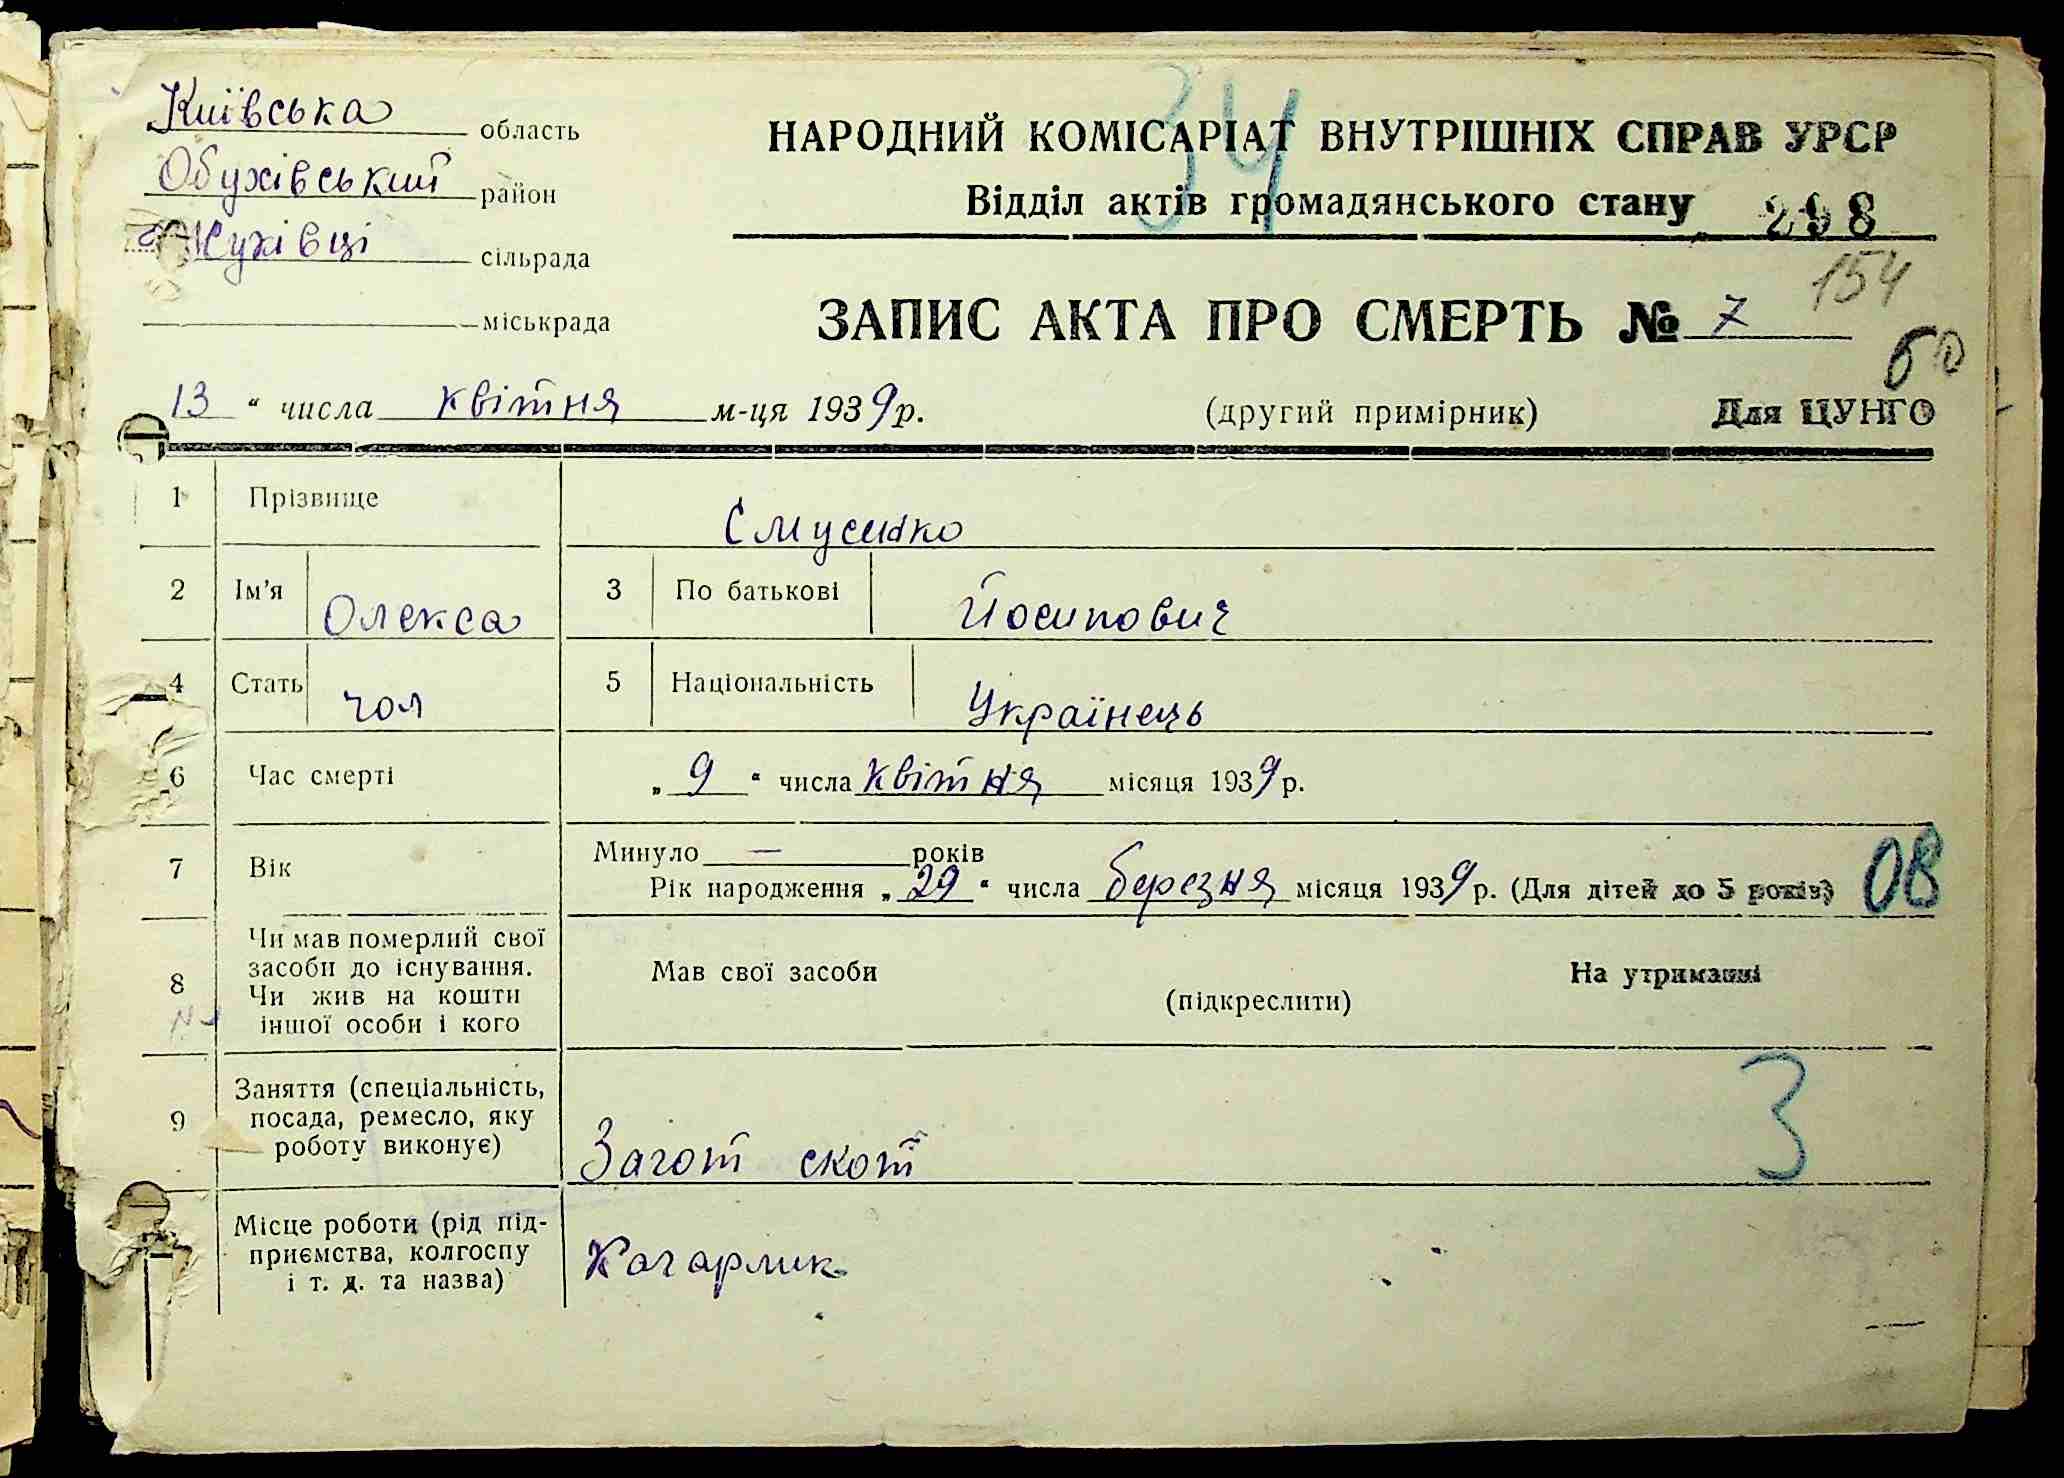 Київська область
Обухівський район
Жуківці сільрада
міськрада
34
НАРОДНИЙ КОМІСАРІАТ ВНУТРІШНІХ СПРАВ УРСР
Відділ актів громадянського стану 298
154
ЗАПИС АКТА ПРО СМЕРТЬ № 7
60
13 " числа квітня м-ця 1939 р.
(другий примірник)
Для ЦУНГО
1 Прізвище
2 Ім'я Олекса 3 По батькові Йосипович
4 Стать чол 5 Національність Українець
6 Час смерті „ 9 " числа квітня місяця 1939 р.
7 Вік Минуло — років
Рік народження „ 29 " числа березня місяця 1939 р. (Для дітей до 5 років)
08
8 Чи мав померлий свої
засоби до існування.
Чи жив на кошти
іншої особи і кого
Мав свої засоби На утриманні
(підкреслити)
9 Заняття (спеціальність,
посада, ремесло, яку
роботу виконує)
Загот скот
3
Місце роботи (рід під-
приємства, колгоспу
і т. д. та назва)
Кагарлик